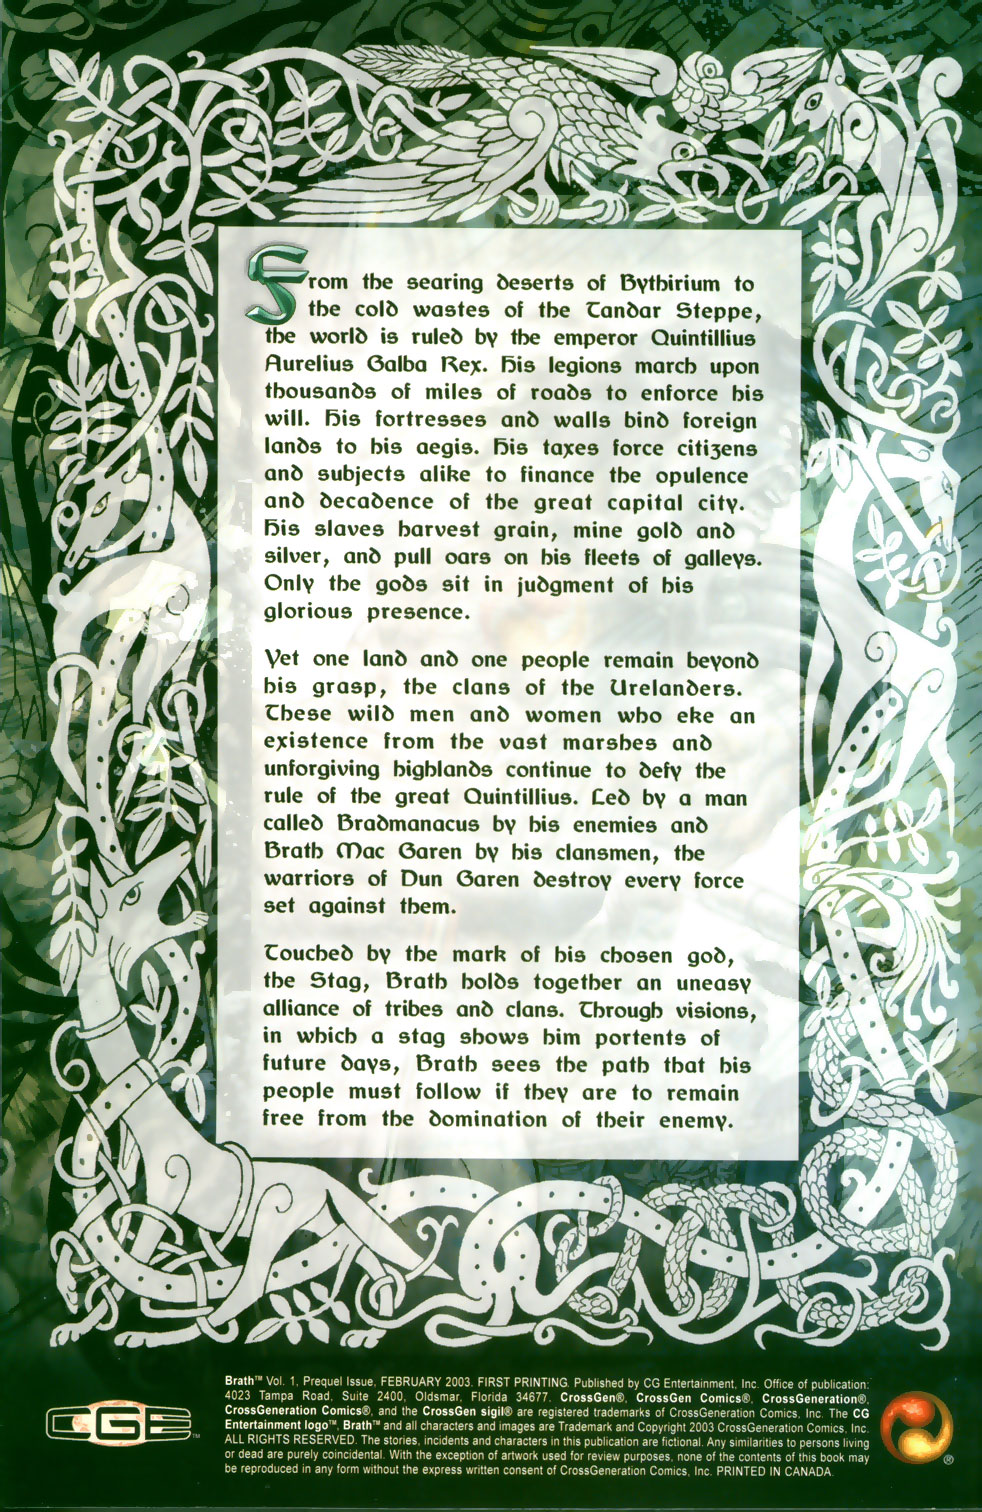 From the searing deserts of Bythirium to
the cold wastes of the Tandar Steppe,
the world is ruled by the emperor Quintillius
Aurelius Galba Rex. His legions march upon
thousands of miles of roads to enforce his
will. His fortresses and walls bind foreign
lands to his aegis. His taxes force citizens
and subjects alike to finance the opulence
and decadence of the great capital city.
His slaves harvest grain, mine gold and
silver, and pull oars on his fleets of galleys.
Only the gods sit in judgment of his
glorious presence.
Yet one land and one people remain beyond
his grasp, the clans of the Urelanders.
These wild men and women who eke an
existence from the vast marshes and
unforgiving highlands continue to defy the
rule of the great Quintillius. Led by a man
called Bradmanacus by his enemies and
Brath Mac Garen by his clansmen, the
warriors of Dun Garen destroy every force
set against them.
Touched by the mark of his chosen god,
the Stag, Brath holds together an uneasy
alliance of tribes and clans. Through visions,
in which a stag shows him portents of
future days, Brath sees the path that his
people must follow if they are to remain
free from the domination of their enemy.
Brath™ Vol. 1, Prequel Issue, FEBRUARY 2003. FIRST PRINTING. Published by CG Entertainment, Inc. Office of publication:
4023 Tampa Road, Suite 2400, Oldsmar, Florida 34677. CrossGen®, CrossGen Comics®, CrossGeneration®,
CrossGeneration Comics®, and the CrossGen sigil® are registered trademarks of CrossGeneration Comics, Inc. The CG
Entertainment logo™, Brath™ and all characters and images are Trademark and Copyright 2003 CrossGeneration Comics, Inc.
ALL RIGHTS RESERVED. The stories, incidents and characters in this publication are fictional. Any similarities to persons living
or dead are purely coincidental. With the exception of artwork used for review purposes, none of the contents of this book may
be reproduced in any form without the express written consent of CrossGeneration Comics, Inc. PRINTED IN CANADA.
CGE™
®